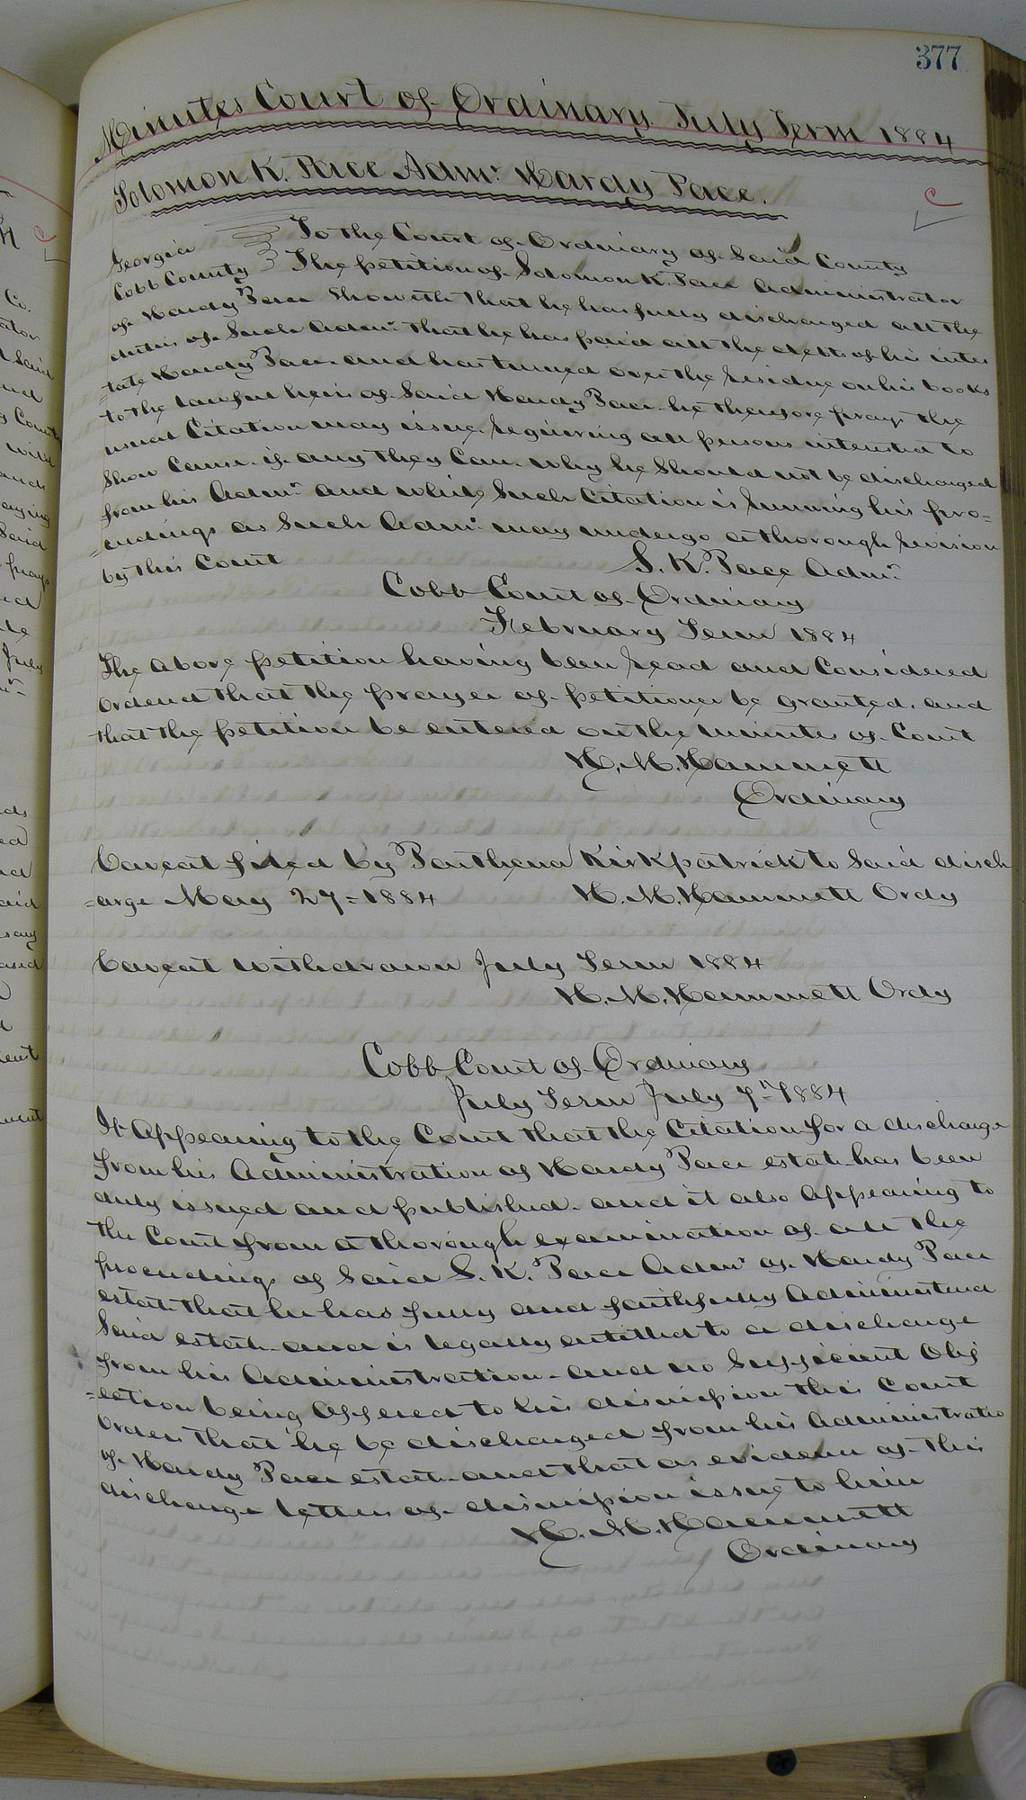 377
Minutes Court of Ordinary July Term 1884
Solomon K. Pace Admr. Hardy Pace.
C
Georgia To the Court of Ordinary of Said County
Cobb County The petition of Solomon K. Pace Administrator
of Hardy Pace Showeth that he has fully discharged all the
duties of Such Admr. that he has paid all the debts of his intes
=tate Hardy Pace and has turned over the residue on his books
to the lawful heirs of Said Hardy Pace. he therefore prays the
usual Citation may issue requiring all persons intersted to
Show Cause if any they Can. why he Should not be discharged
from his Admn. and while Such Citation is running his pro=
=ceedings as Such Admr. may undergo a thorough revision
by this Court S. K. Pace Admr.
Cobb Court of Ordinary
February Term 1884
The above petition having been read and Considered
Ordered that the prayer of petitioner be granted. and
that the petition be entered on the minutes of Court
H. M. Hammett
Ordinary
Caveat filed by Parthena Kirkpatrick to Said disch
=arge May 27=1884 H. M. Hammett Ordy
Caveat withdrawn July Term 1884
H. M. Hammett Ordy
Cobb Court of Ordinary
July Term July 7th 1884
It Appearing to the Court that the Citation for a discharge
from his Administration of Hardy Pace estate has been
duly issued and published. and it also Appearing to
the Court from a thorough examination of all the
proceedings of Said S. K. Pace Admr of Hardy Pace
estate that he has fully and faithfully Administered
Said estate and is legally entitled to a discharge
from his Administration. and no Sufficient Obj
=ection being Offered to his dismission this Court
Orders that he be discharged from his Administratio
of Hardy Pace estate and that as evidence of this
discharge letters of dismission issue to him
H. M. Hammett
Ordinary